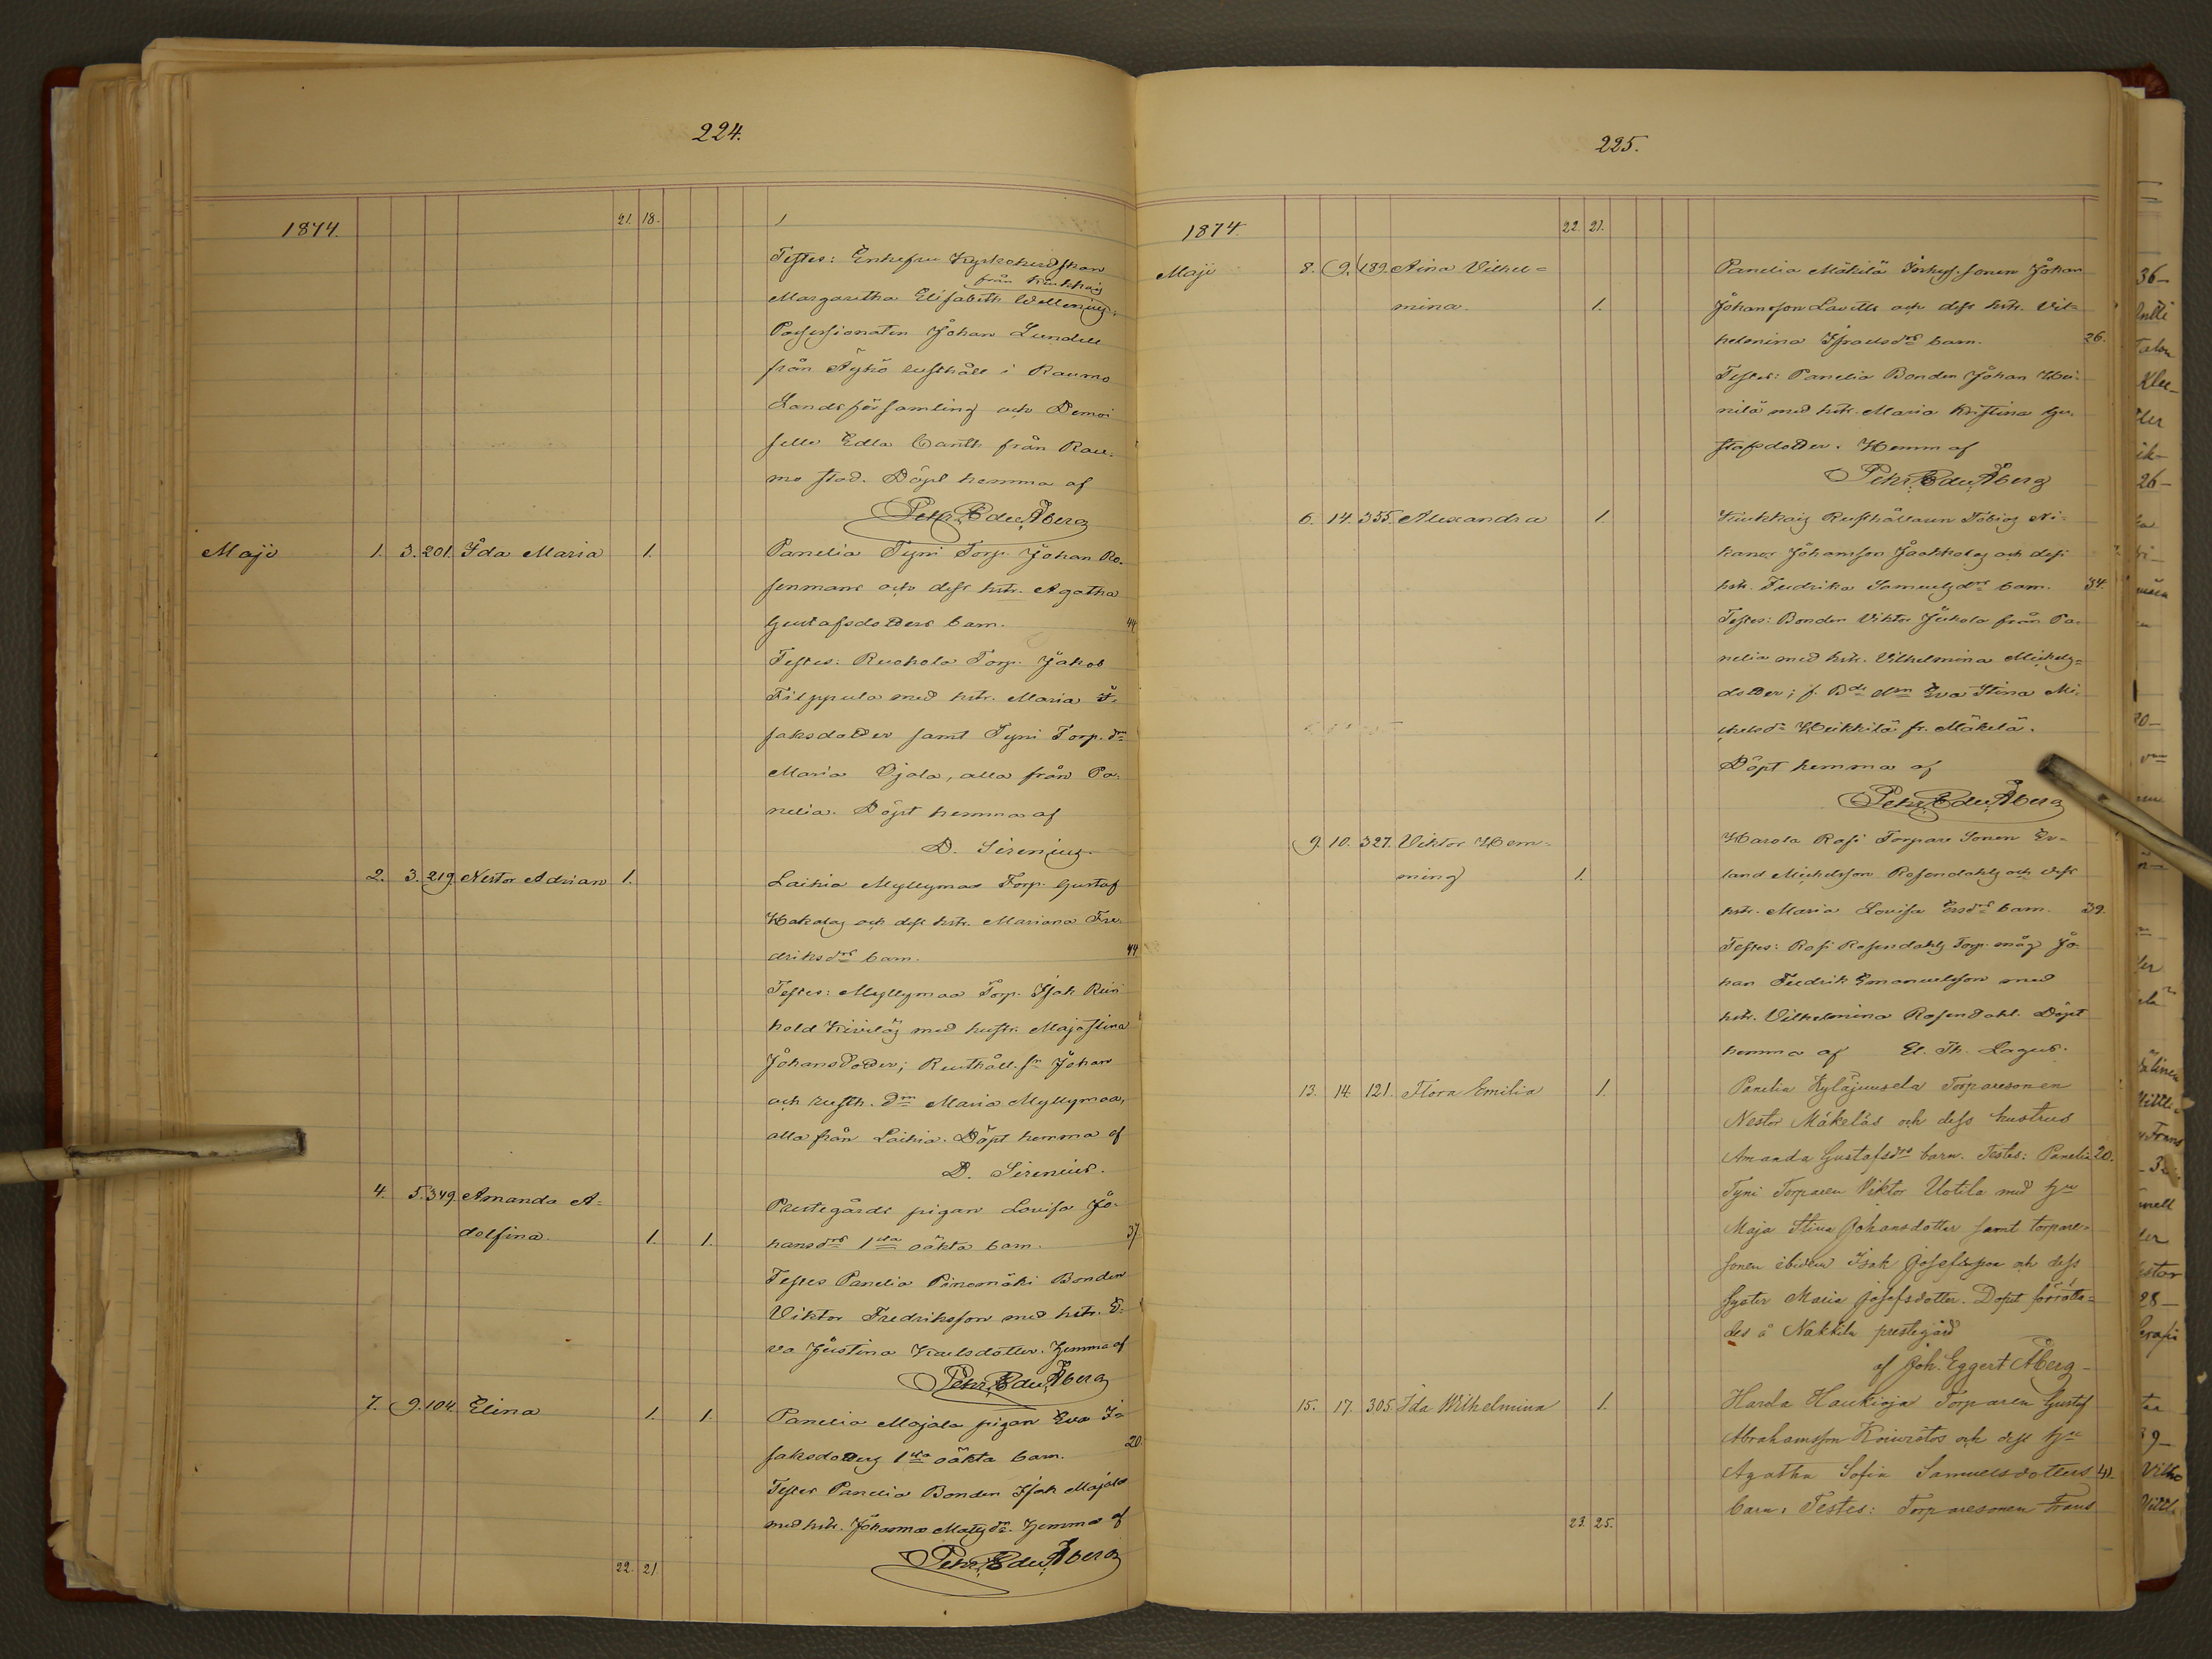 224.
1874.
21. 18.
Testes: Enkefru Kyrkoherdskan
från Kiukkais
Margaretha Elisabeth Wallenius;
Possessionaten Johan Lundell
från Äyhö rusthåll i Raumo
Landsförsamling och Demoi
selle Edla Canth från Rau-
mo stad. Döpt hemma af
Petr. Edu. Åberg
Majo 1. 3. 201. Ida Maria 1. Panelia Tyni Torp. Johan Ro-
senmans och dess hstr. Agatha
Gustafsdotters barn. 44
Testes: Ruohola Torp. Jakob
Filppula med hstr. Maria I-
saksdotter samt Tyni Torp. dr
Maria Ojala, alla från Pa-
nelia. Döpt hemma af
D. Sirenius.
2. 3. 219. Nestor Adrian 1. Laihia Myllymaa Torp. Gustaf
Hakalas och dess hstr. Mariana Fre-
driksdrs barn. 44
Testes: Myllymaa Torp. Isak Rein
hold Kivelä med hustr. Maja Stina
Johansdotter; Rusthåll. sn Johan
och rusth. dn Maria Myllymaa,
alla från Laihia. Döpt hemma af
D. Sirenius.
4. 5. 349. Amanda A-
dolfina. 1. 1.
Prestegårds pigan Lovisa Jo-
hansdrs 1sta oäkta barn. 37
Testes Panelia Bonden
Viktor Fredriksson med hstr. E-
va Justina Karlsdotter. Hemma af
Petr. Edu. Åberg
7. 9. 104. Elina 1. 1. Panelia Majala pigan Eva I-
saksdotters 1sta oäkta barn. 20
Testes Panelia Bonden Isak Majala
med hstr. Johanna Matsdr. Hemma af
Petr. Edu. Åberg
22. 21
225.
1874.
22. 21.
Majo 8. 9. 189. Aina Vilhel-
mina. 1.
Panelia Mäkilä Inhys. sonen Johan
Johansson Lavitts och dess hstr. Vil-
helmina Israelsdrs barn. 26.
Testes: Panelia Bonden Johan Hei-
nilä med hstr. Maria Kristina Gu-
stafsdotter. Hemm af
Petr. Edu. Åberg
6. 14. 355. Alexandra 1. Kiukkais Rusthållaren Tobias Ni-
kanor Johansson Jaakkolas och dess
hstr. Fredrika Samuelsdrs barn. 34.
Testes: Bonden Viktor Jukola från Pa-
nelia med hstr. Vilhelmina Mickels-
dotter; f. Bde drn Eva Stina Mi-
chelsdr Heikkilä fr. Mäkelä.
Döpt hemma af
Petr. Edu. Åberg
9. 10. 327. Viktor Hem-
ming 1.
Harola Rosi Torpare Sonen Er-
land Michelsson Rosendahls och dess
hstr. Maria Lovisa Ersdrs barn. 39.
Testes: Rosi Rosendahls Torp. måg Jo-
han Fredrik Emanuelsson med
hstr. Vilhelmina Rosendahl. Döpt
hemma af El. Th. Lagus.
13. 14. 121. Flora Emilia 1. Panelia Kyläjuusela Torparesonen
Nestor Mäkeläs och dess hustrus
Amanda Gustafsdrs barn. Testes: Panelia 20.
Tyni Torparen Viktor Uotila med hu
Maja Stina Johansdotter samt torpare-
sonen ibidem Isak Josefsson och dess
syster Maria Josefsdotter. Dopet förrätta-
des å Nakkila prestegård
af Joh. Eggert Åberg
15. 17. 305. Ida Wilhelmina 1. Harola Haukioja Torparen Gustaf
Abrahamsson Koivistos och dess hu
Agatha Sofia Samuelsdotters 41.
barn. Testes: Torparesonen Frans
23. 25.